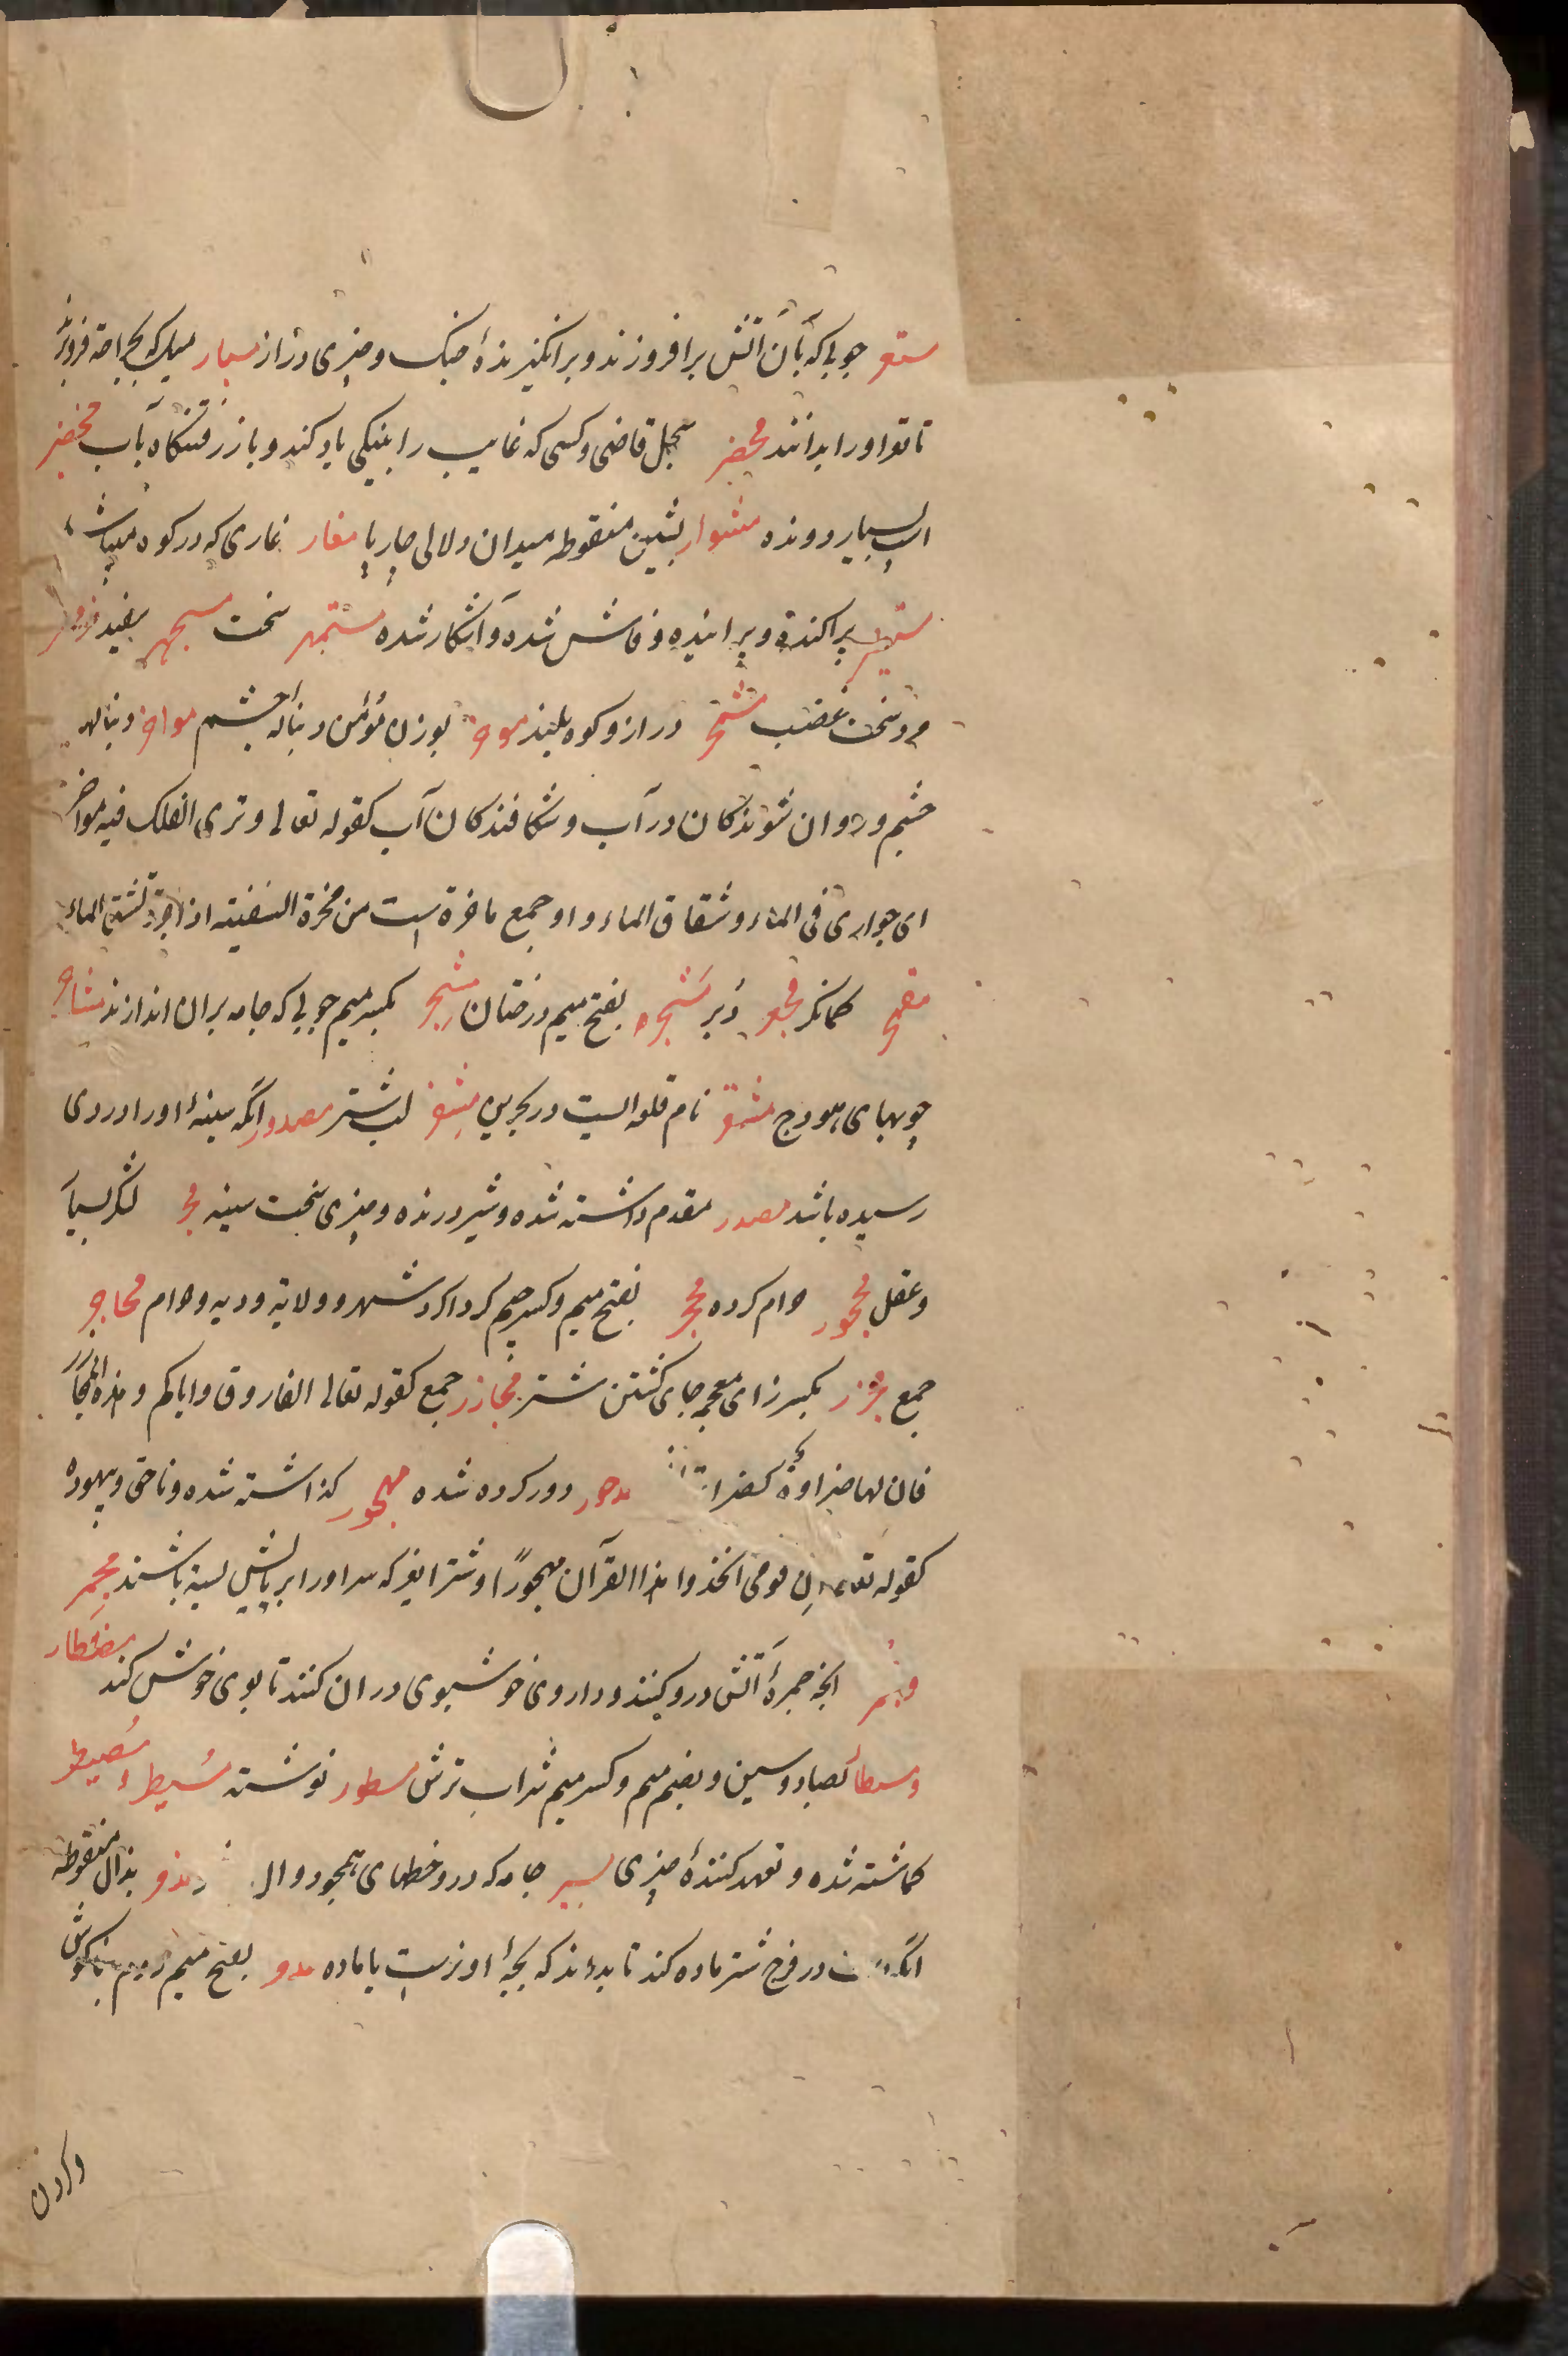 مسعر چوبی که بآن آتش برافروزند و برانگیزندهٔ جنک و چیزی دراز مسبار میلی که بجراحة فروبرند
تا قعر او را بدانند محضر سجل قاضی و کسی که غایب را بنیکی یاد کند و بازرفتنکاه بآب محضیر
اسپ بسیار دونده مشوار بشین منقوطه میدان دلالی چارپا مغار غاری که در کوه میباشد
مستطیر پراکنده و پرانیده و فاش شده و آشکار شده مستمر سخت مسجهر سفید
مرد سخت غضب مشمخر دراز و کوه بلند موخر بوزن مؤمن دنبالهٔ چشم مواخر دنبالهای
چشم و روان شوندکان در آب و شکافندکان آب کقوله تعالی و تری الفلک فیه مواخر
ای جواری فی الماء و شقاق الماء و او جمع ماخرة است من مخرة السفینه اذا جرت تشق الماء
مقمجر کمانکر مجعر دُبر مَشجره بفتح میم درختان مشجر بکسر میم چوبی که جامه بران اندازند مشاجر
چوبهای هودج مشقر نام قلعه ایست در بحرین مشفر لب شتر مصدور آنکه سینهٔ او را دردی
رسیده باشد مصدر مقدم داشته شده و شیر درنده و چیزی سخت سینه مجر لشکر بسیار
و عقل محجور حرام کرده محجر بفتح میم و کسر جیم کرداکرد شهر و ولایة و دیه و حرام محاجر
جمع مجزر بکسر زای معجمه جای کشتن شتر مجازر جمع کقوله تعالی الفاروق و ایاکم و هذه المجازر
فان لها ضراوة کضراوة مدحور دور کرده شده مهجور کذاشته شده و ناحق و بیهوده
کقوله تعالی ان قومی اتخذوا هذا القرآن مهجوراً و شتر نیز که سر او را بر پایش بسته باشند مجمِر
ومجمر آنچه جمرهٔ آتش درو کنند و داروی خوشبوی دران کنند تا بوی خوش کند مصطار
و مسطار بصاد و سین و بضم میم و کسر میم شراب ترش مسطور نوشته مُسیطر و مُصیطر
کماشته شده و تعهد کنندهٔ چیزی مسیر جامه که درو خطهای همچو دوال مذمر بذال منقوطه
آنکه دست در فرج شتر ماده کند تا بداند که بچهٔ او نرست یا ماده مدر بفتح میم
وکردن